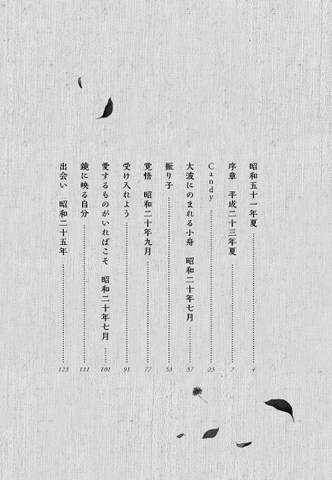 昭和五十一年夏 4
序章 平成二十三年夏 7
Candy 23
大波にのまれる小舟 昭和二十年七月 37
振り子 53
覚悟 昭和二十年九月 77
受け入れよう 91
愛するものがいればこそ 昭和二十年七月 101
鏡に映る自分 111
出会い 昭和二十五年 123